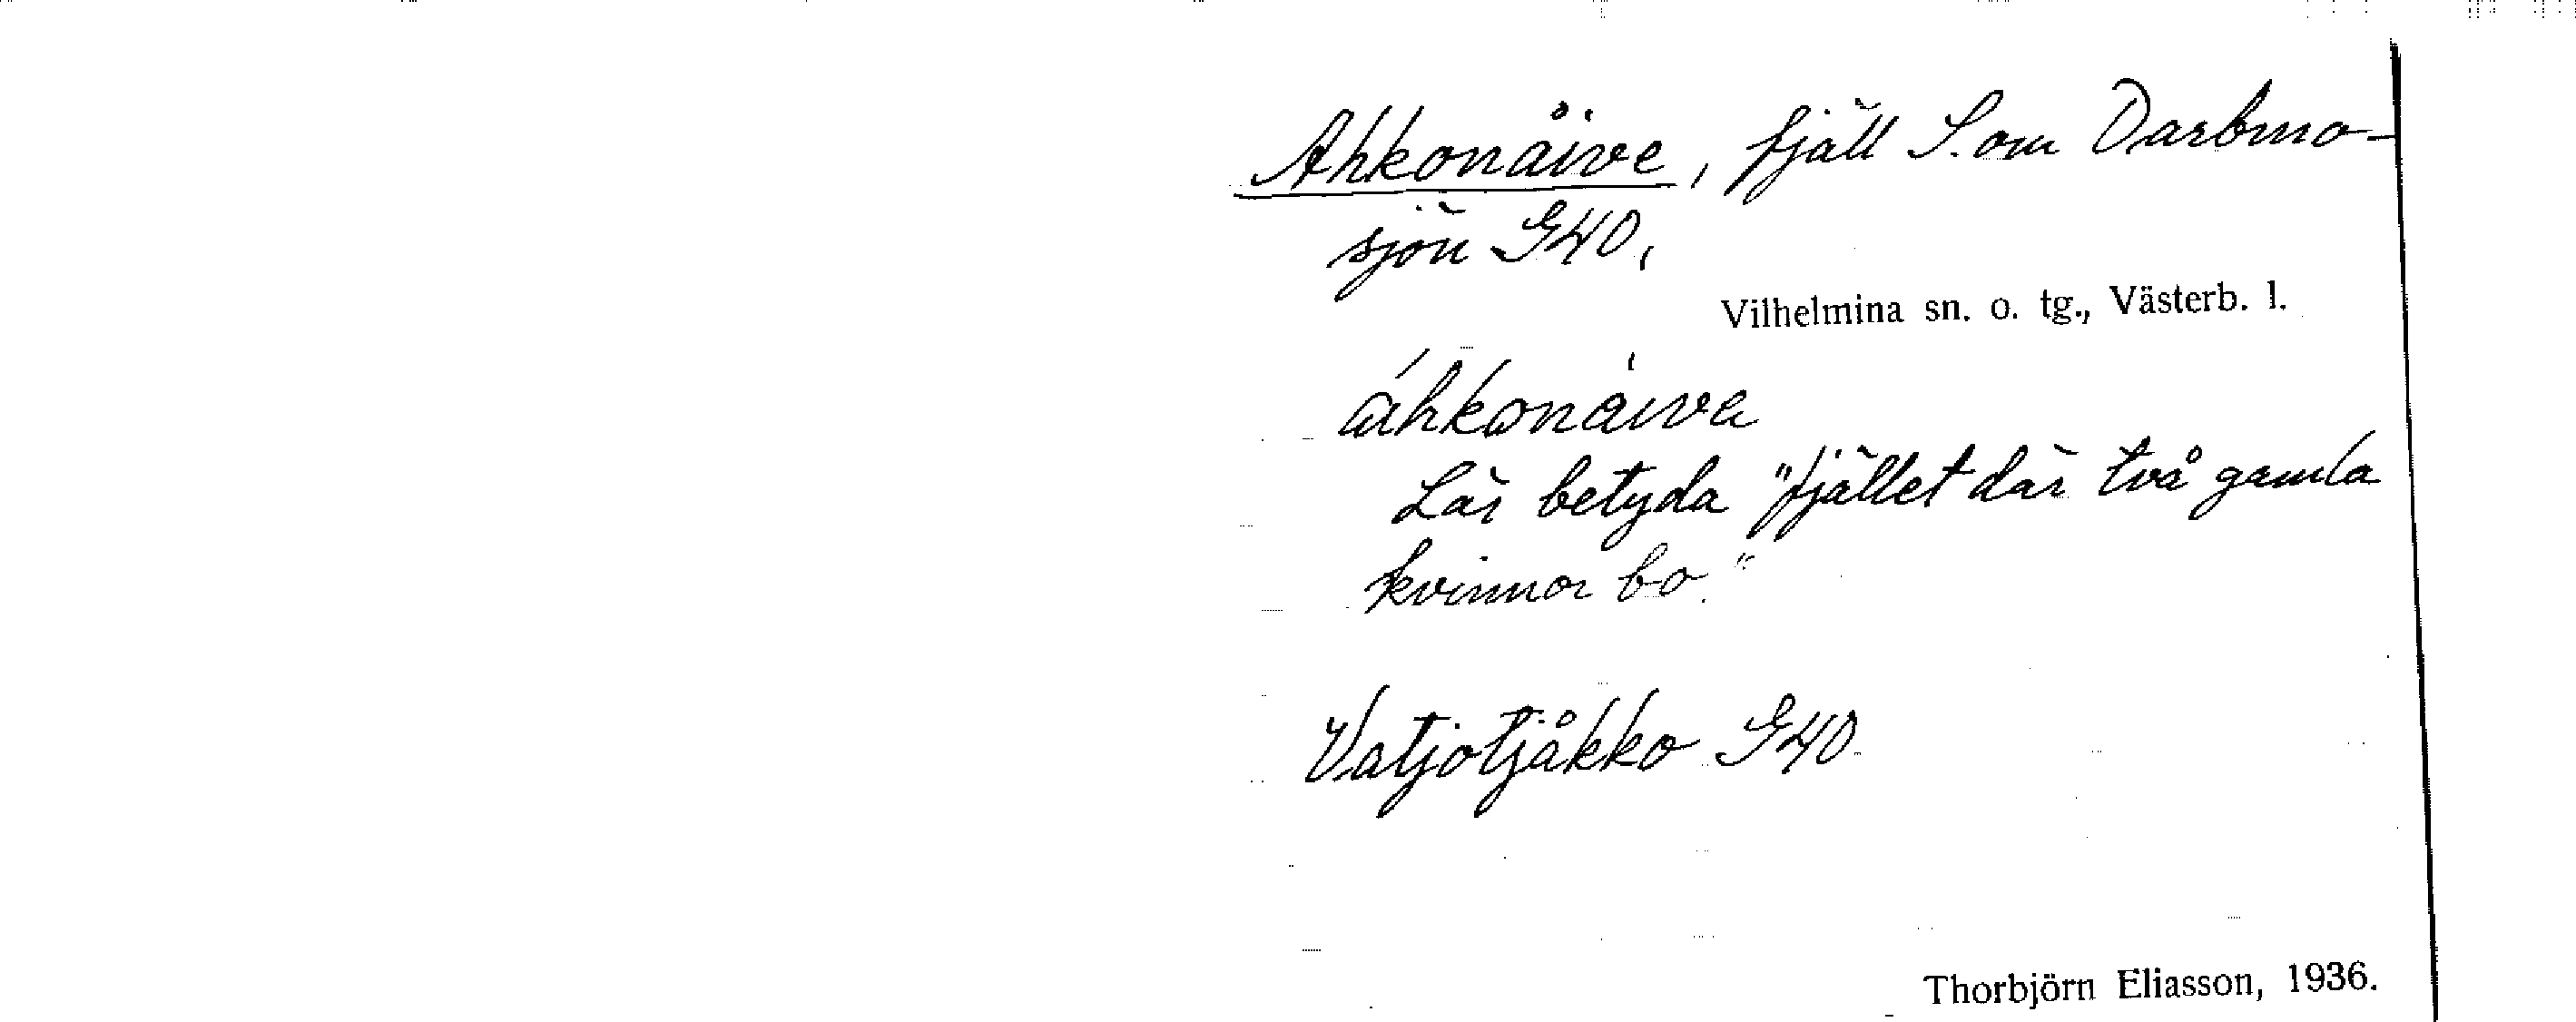 Ahkonåive, fjäll S. om Darbmo-
sjön G40,
Vilhelmina sn. o. tg., Västerb. l.
áhkonåive
Lär betyda "fjället där två gamla
kvinnor bo."
Vatjotjåkko G40
Thorbjörn Eliasson, 1936.